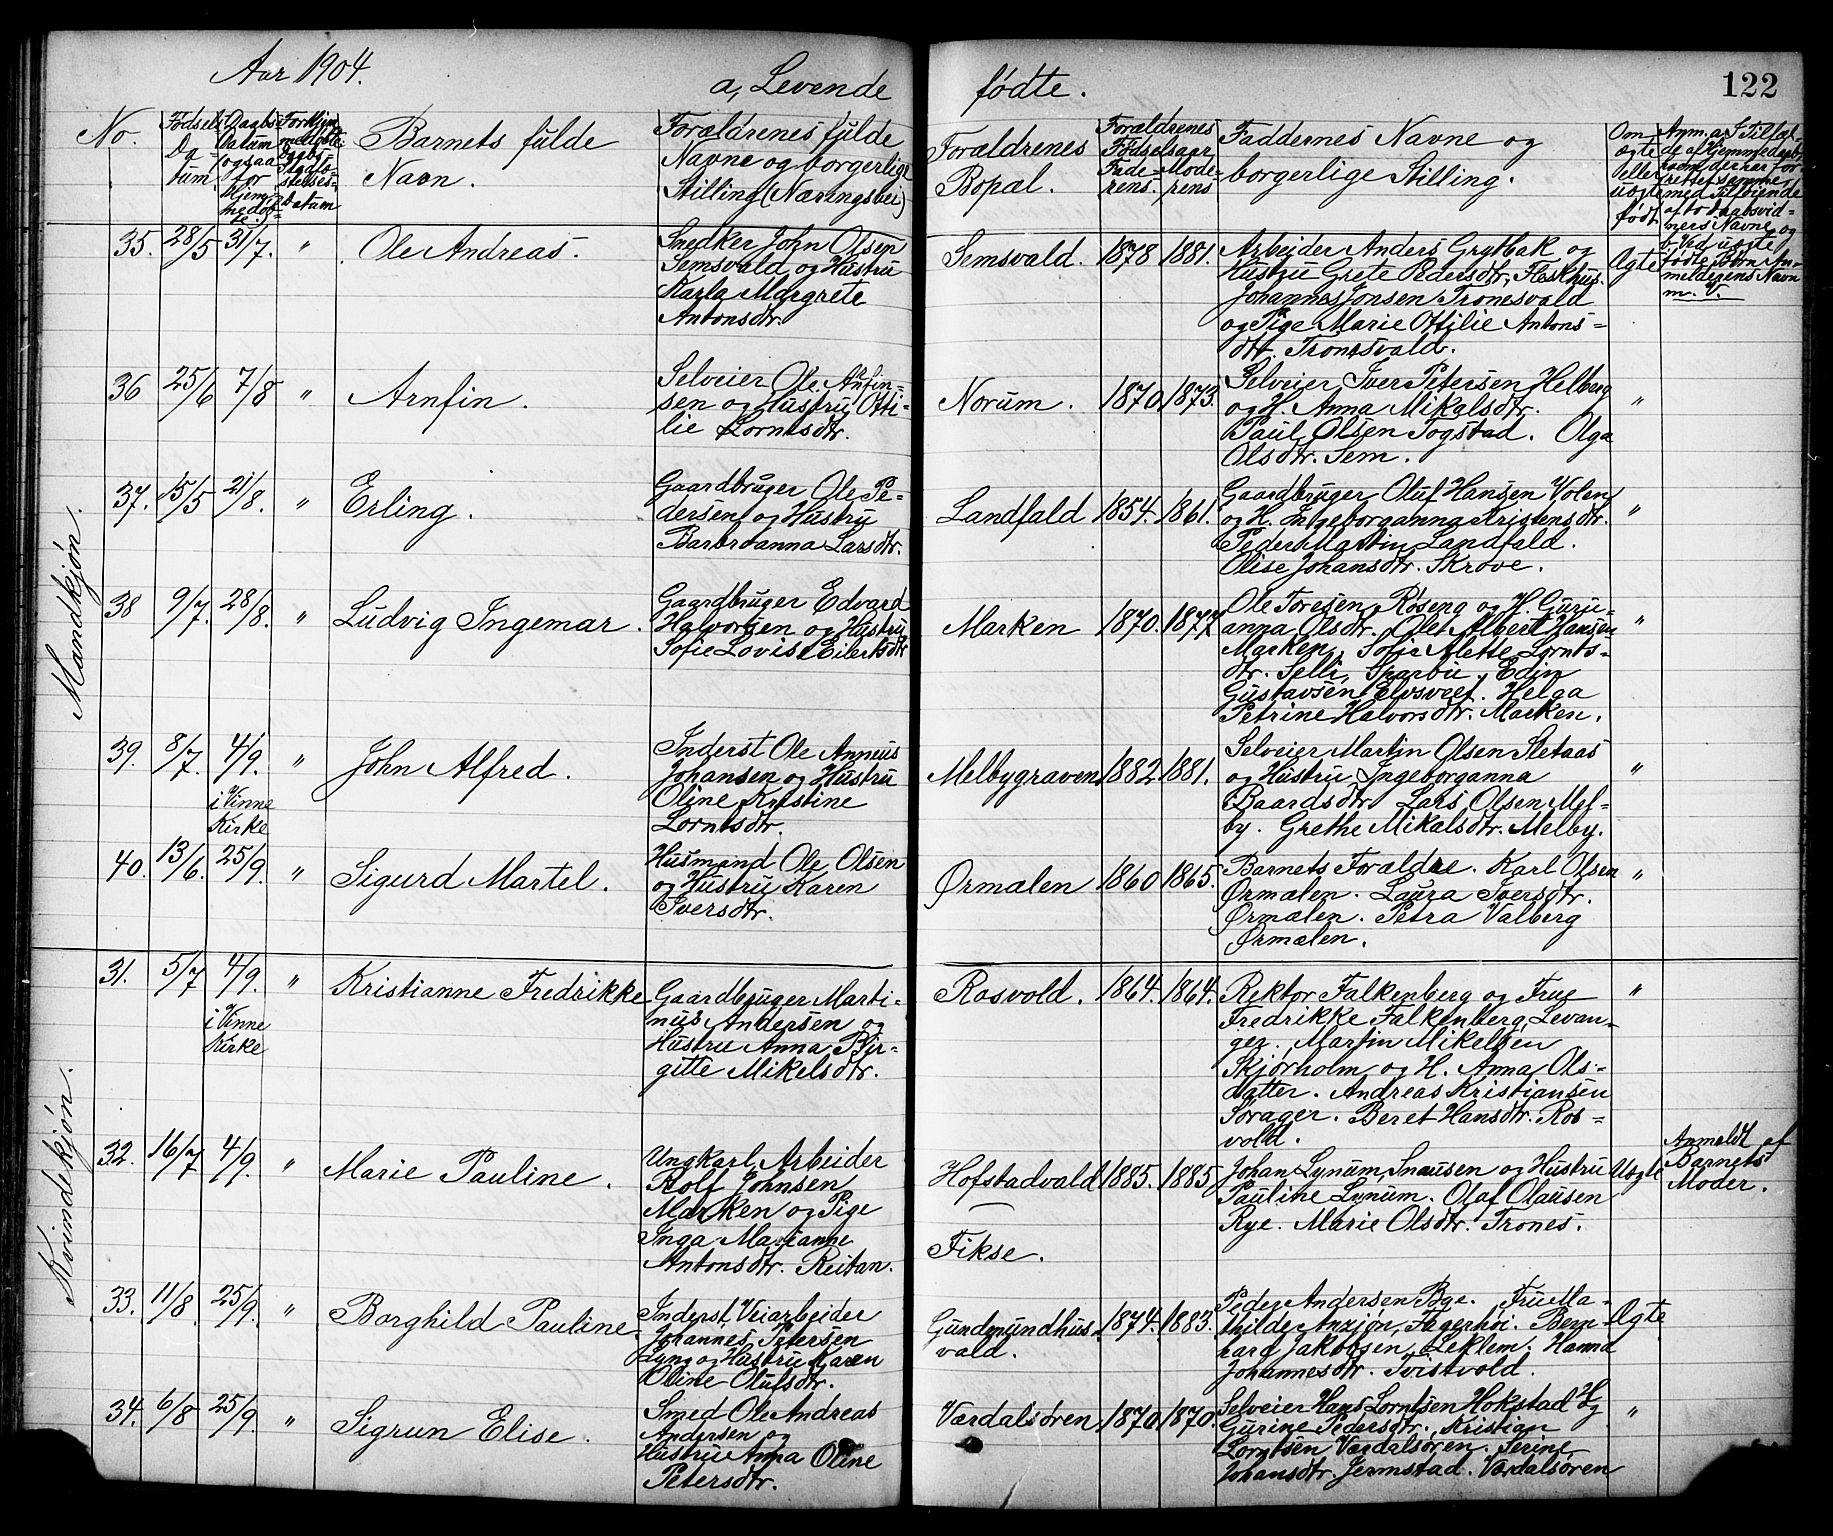 Aar 1904.
a, Levende fødte.
122
No.
Fødsels Da tum.
Daabs Datum (ogsaa for Hjem medøbte)
Barnets fulde Navn.
Forældrenes fulde Navne og borgerlige Stilling (Næringsvei)
Forældrenes Bopæl.
Forældrenes Fødselsaar
Fade= rens.
Mode= rens
Faddernes Navne og borgerlige Stilling.
Om ægte eller uægte født.
Mandkjøn.
35. 28/5 31/7. " Ole Andreas.
Snedker John Olsen
Semsvald og Hustru
Karla Margrete
Antonsdtr.
Semsvald. 1878 1881.
Arbeider Anders Grytbak og
Hustru Grete Pedersdtr,
Johannes Jonsen Tronesvald
og Pige Marie Ottilie Antons=
dtr. Tronesvald.
Ægte
36 25/6 7/8 " Arnfin.
Selveier Ole Anfin=
sen og Hustru Otti=
lie Lorntsdtr.
Norum. 1870. 1873.
Selveier Iver Petersen Helberg
og H. Anna Mikalsdtr.
Paul Olsen Togstad. Olga
Olsdtr. Sem.
"
37. 15/5 21/8. " Erling.
Gaardbruger Ole Pe=
dersen og Hustru
Barbroanna Larsdtr.
Landfald 1854. 1861.
Gaardbruger Oluf Hansen Volen
og H. Ingeborganna Kristensdtr.
Peder Martin Landfald.
Olise Johansdtr. Skrove.
"
38 9/7. 28/8. " Ludvig Ingemar.
Gaardbruger Edvard
Halvorsen og Hustru
Sofie Lovise Eilertsdtr
Marken 1870. 1877
Ole Toresen Røseng og H. Guru=
anna Olsdtr. Olet Albert Hansen
Marken, Sofie Alette Lornts=
dtr. Selli, Sparbu. Edin
Gustavsen Elvsveet. Helga
Petrine Halvorsdtr. Marken.
"
39. 8/7. 4/9. i Vinne Kirke " John Alfred.
Inderst Ole Anneus
Johansen og Hustru
Oline Kristine
Lorntsdtr.
Melbygraven 1882 1881.
Selveier Martin Olsen Sletaas
og Hustru Ingeborganna
Baardsdtr. Lars Olsen Mel=
by. Grethe Mikalsdtr. Melby.
"
40. 13/6. 25/9. " Sigurd Martel.
Husmand Ole Olsen
og Hustru Karen
Iversdtr.
Ørmælen 1860 1865.
Barnets Forældre. Karl Olsen
Ørmælen. Laura Iversdtr.
Ørmælen. Petra Valberg
Ørmælen.
"
Kvindekjøn.
31. 5/7 4/9. i Vinne Kirke " Kristianne Fredrikke
Gaardbruger Marti=
nus Andersen og
Hustru Anna Bir=
gitte Mikelsdtr.
Rosvold. 1864. 1864.
Rektor Falkenberg og Frue
Fredrikke Falkenberg, Levan=
ger. Martin Mikelsen
Skjørholm og H. Anna Ols=
datter. Andreas Kristiansen
Sørager. Beret Hansdtr. Ros=
vold.
"
32. 16/7 4/9. " Marie Pauline.
Ungkarl Arbeider
Rolf Johnsen
Marken og Pige
Inga Marianne
Antonsdtr. Reitan.
Hofstadvald
Fikse.
1885. 1885
Johan Lynum, Snausen og Hustru
Pauline Lynum. Olaf Olausen
Rye. Marie Olsdtr. Trones.
Uægte
Anmeldt af
Barnets
Moder.
33. 11/8. 25/9. " Borghild Pauline
Inderst, Veiarbeider
Johannes Petersen
Lyng og Hustru Karen
Oline Olufsdtr.
Gundmundhus
vald.
1874. 1883.
Peder Andersen Bye. Frue Ma=
thilde Anxjøn, Fagerhøi. Bern=
hard Jakobsen, Leklem. Hanna
Johannesdtr. Tvistvold.
Ægte
34. 6/8 25/9. " Sigrun Elise.
Smed Ole Andreas
Andersen og
Hustru Anna Oline
Petersdtr.
Værdalsøren 1870. 1870.
Selveier Hans Lorntsen Hokstad H.
Gurine Pedersdtr. Kristian
Lorntsen Værdalsøren. Serine
Johansdtr. Jermstad. Værdalsøren
"